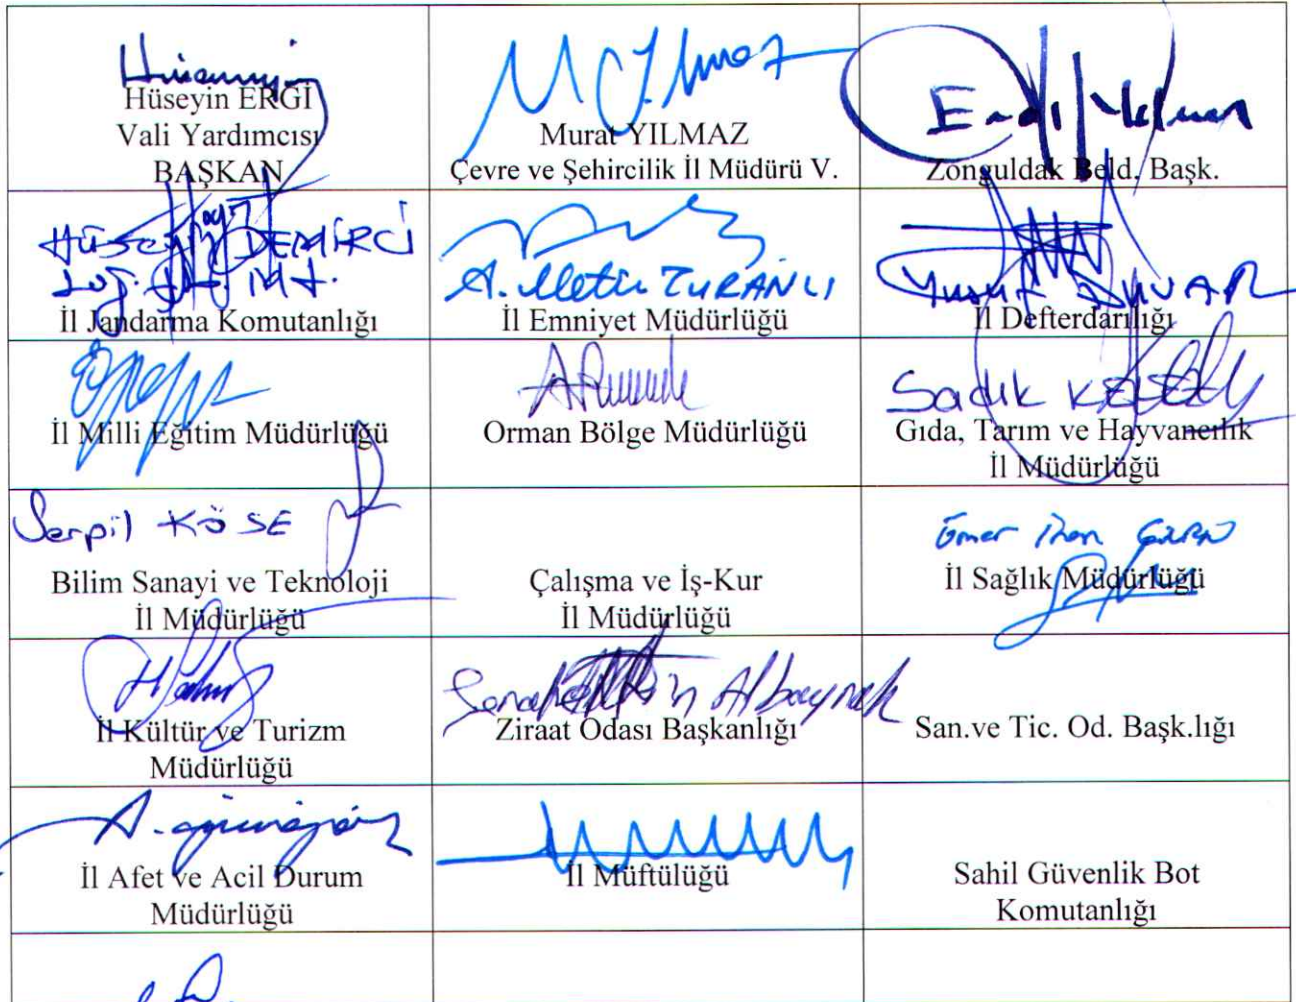 Hüseyin ERGİ
Vali Yardımcısı
BAŞKAN
M Yılmaz
Murat YILMAZ
Çevre ve Şehircilik İl Müdürü V.
Zonguldak Beld. Başk.
HÜSEYİN DEMİRCİ
İl Jandarma Komutanlığı
A. Metin TURANLI
İl Emniyet Müdürlüğü
Yusuf DUVAR
İl Defterdarılığı
İl Milli Eğitim Müdürlüğü
Orman Bölge Müdürlüğü
Sadık
Gıda, Tarım ve Hayvancılık
İl Müdürlüğü
Serpil KÖSE
Bilim Sanayi ve Teknoloji
İl Müdürlüğü
Çalışma ve İş-Kur
İl Müdürlüğü
Ömer
İl Sağlık Müdürlüğü
İl Kültür ve Turizm
Müdürlüğü
Albayrak
Ziraat Odası Başkanlığı
San.ve Tic. Od. Başk.lığı
İl Afet ve Acil Durum
Müdürlüğü
İl Müftülüğü
Sahil Güvenlik Bot
Komutanlığı